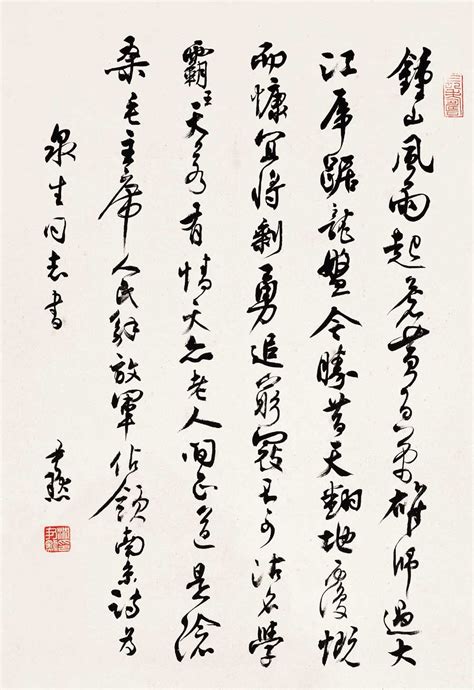 鍾山風雨起蒼黃百萬雄師過大
江虎踞龍盤今勝昔天翻地覆慨
而慷宜將剩勇追窮寇不可沽名學
霸王天若有情天亦老人間正道是滄
桑毛主席人民解放軍佔領南京詩為
泉生同志書
尹默